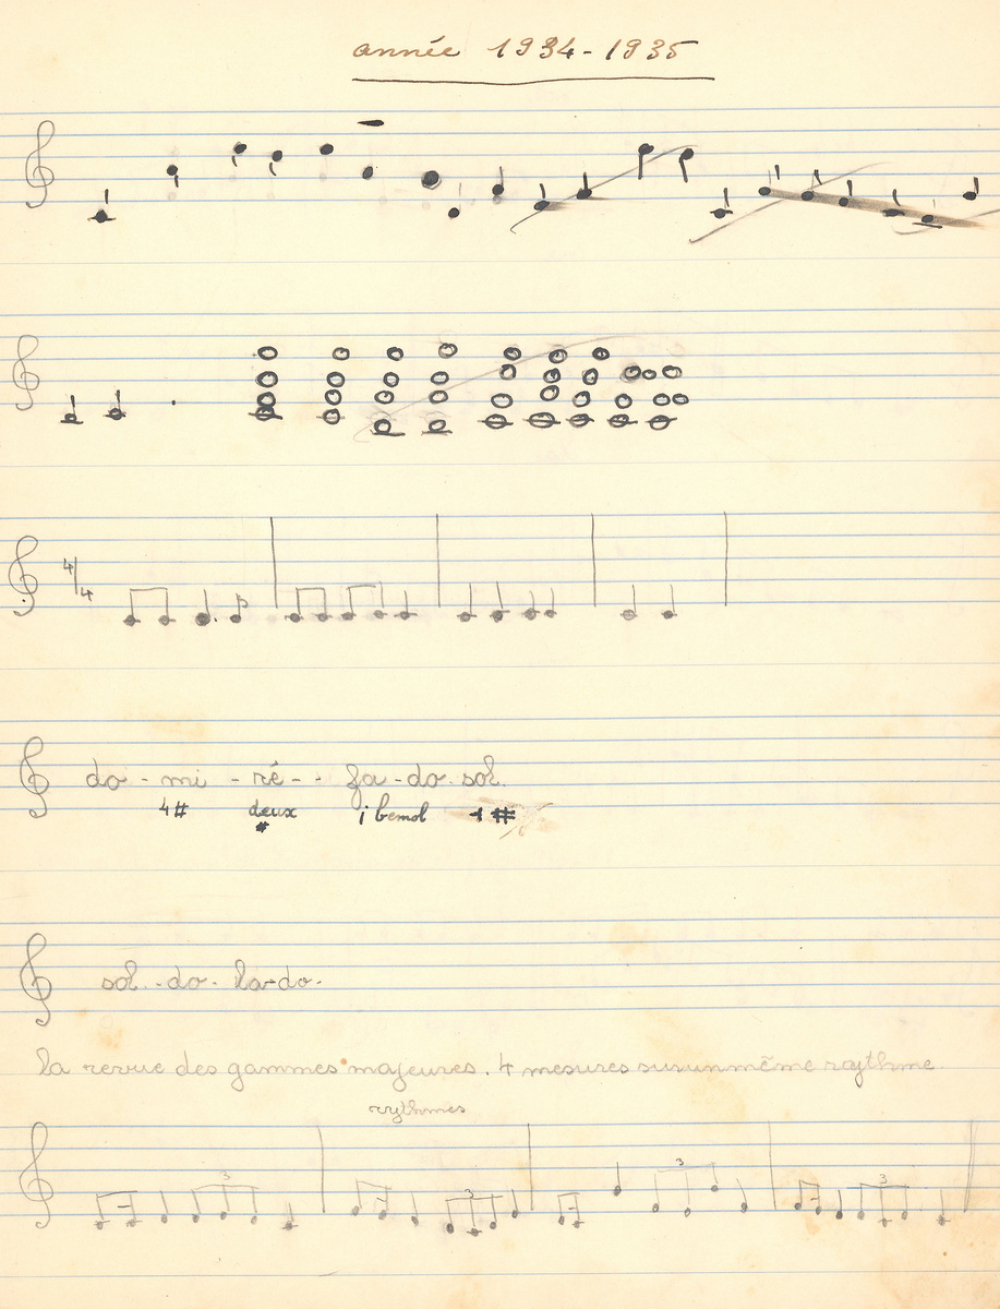 année 1934-1935
4/4
do - mi - ré - - fa - do sol.
4# deux # 1 bemol 1 #
sol - do - la-do.
la revue des gammes majeures. 4 mesures sur un même rythme.
rythmes
3 3 3 3